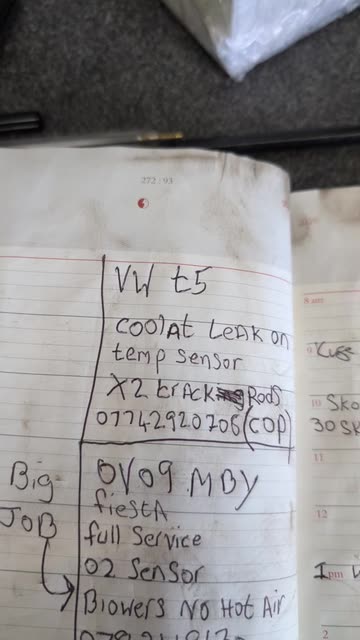 272 : 93
VW t5
coolAt LeAK on
temp sensor
X2 trAck Rods
07742920706 (COP)
OV09 MBY
fiestA
full Service
O2 Sensor
Blowers No Hot Air
Big
JOB
8 am
9
10 Sko
30 SK
11
12
1pm
2